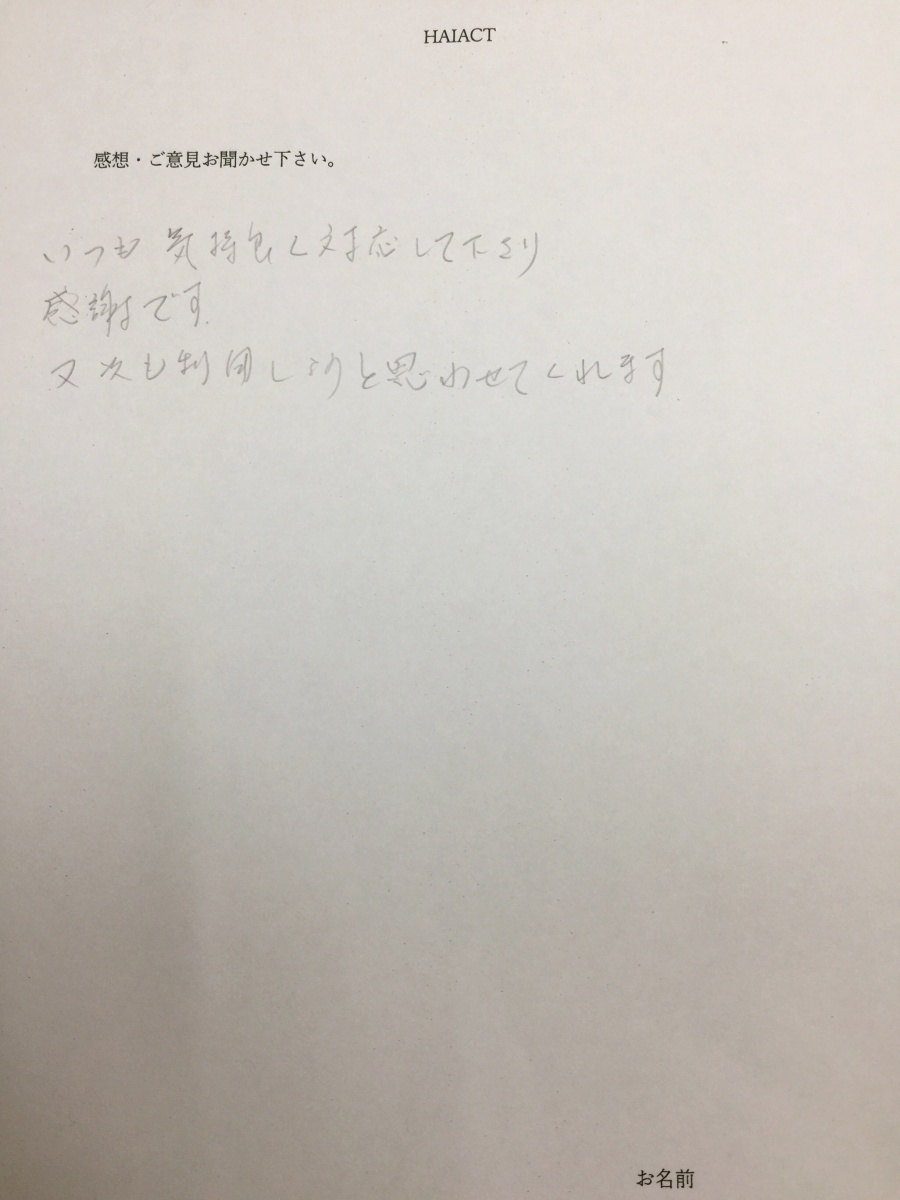 HAIACT
感想・ご意見お聞かせ下さい。
いつも気持良く対応して下さり
感謝です。
又次も利用しようと思わせてくれます。
お名前